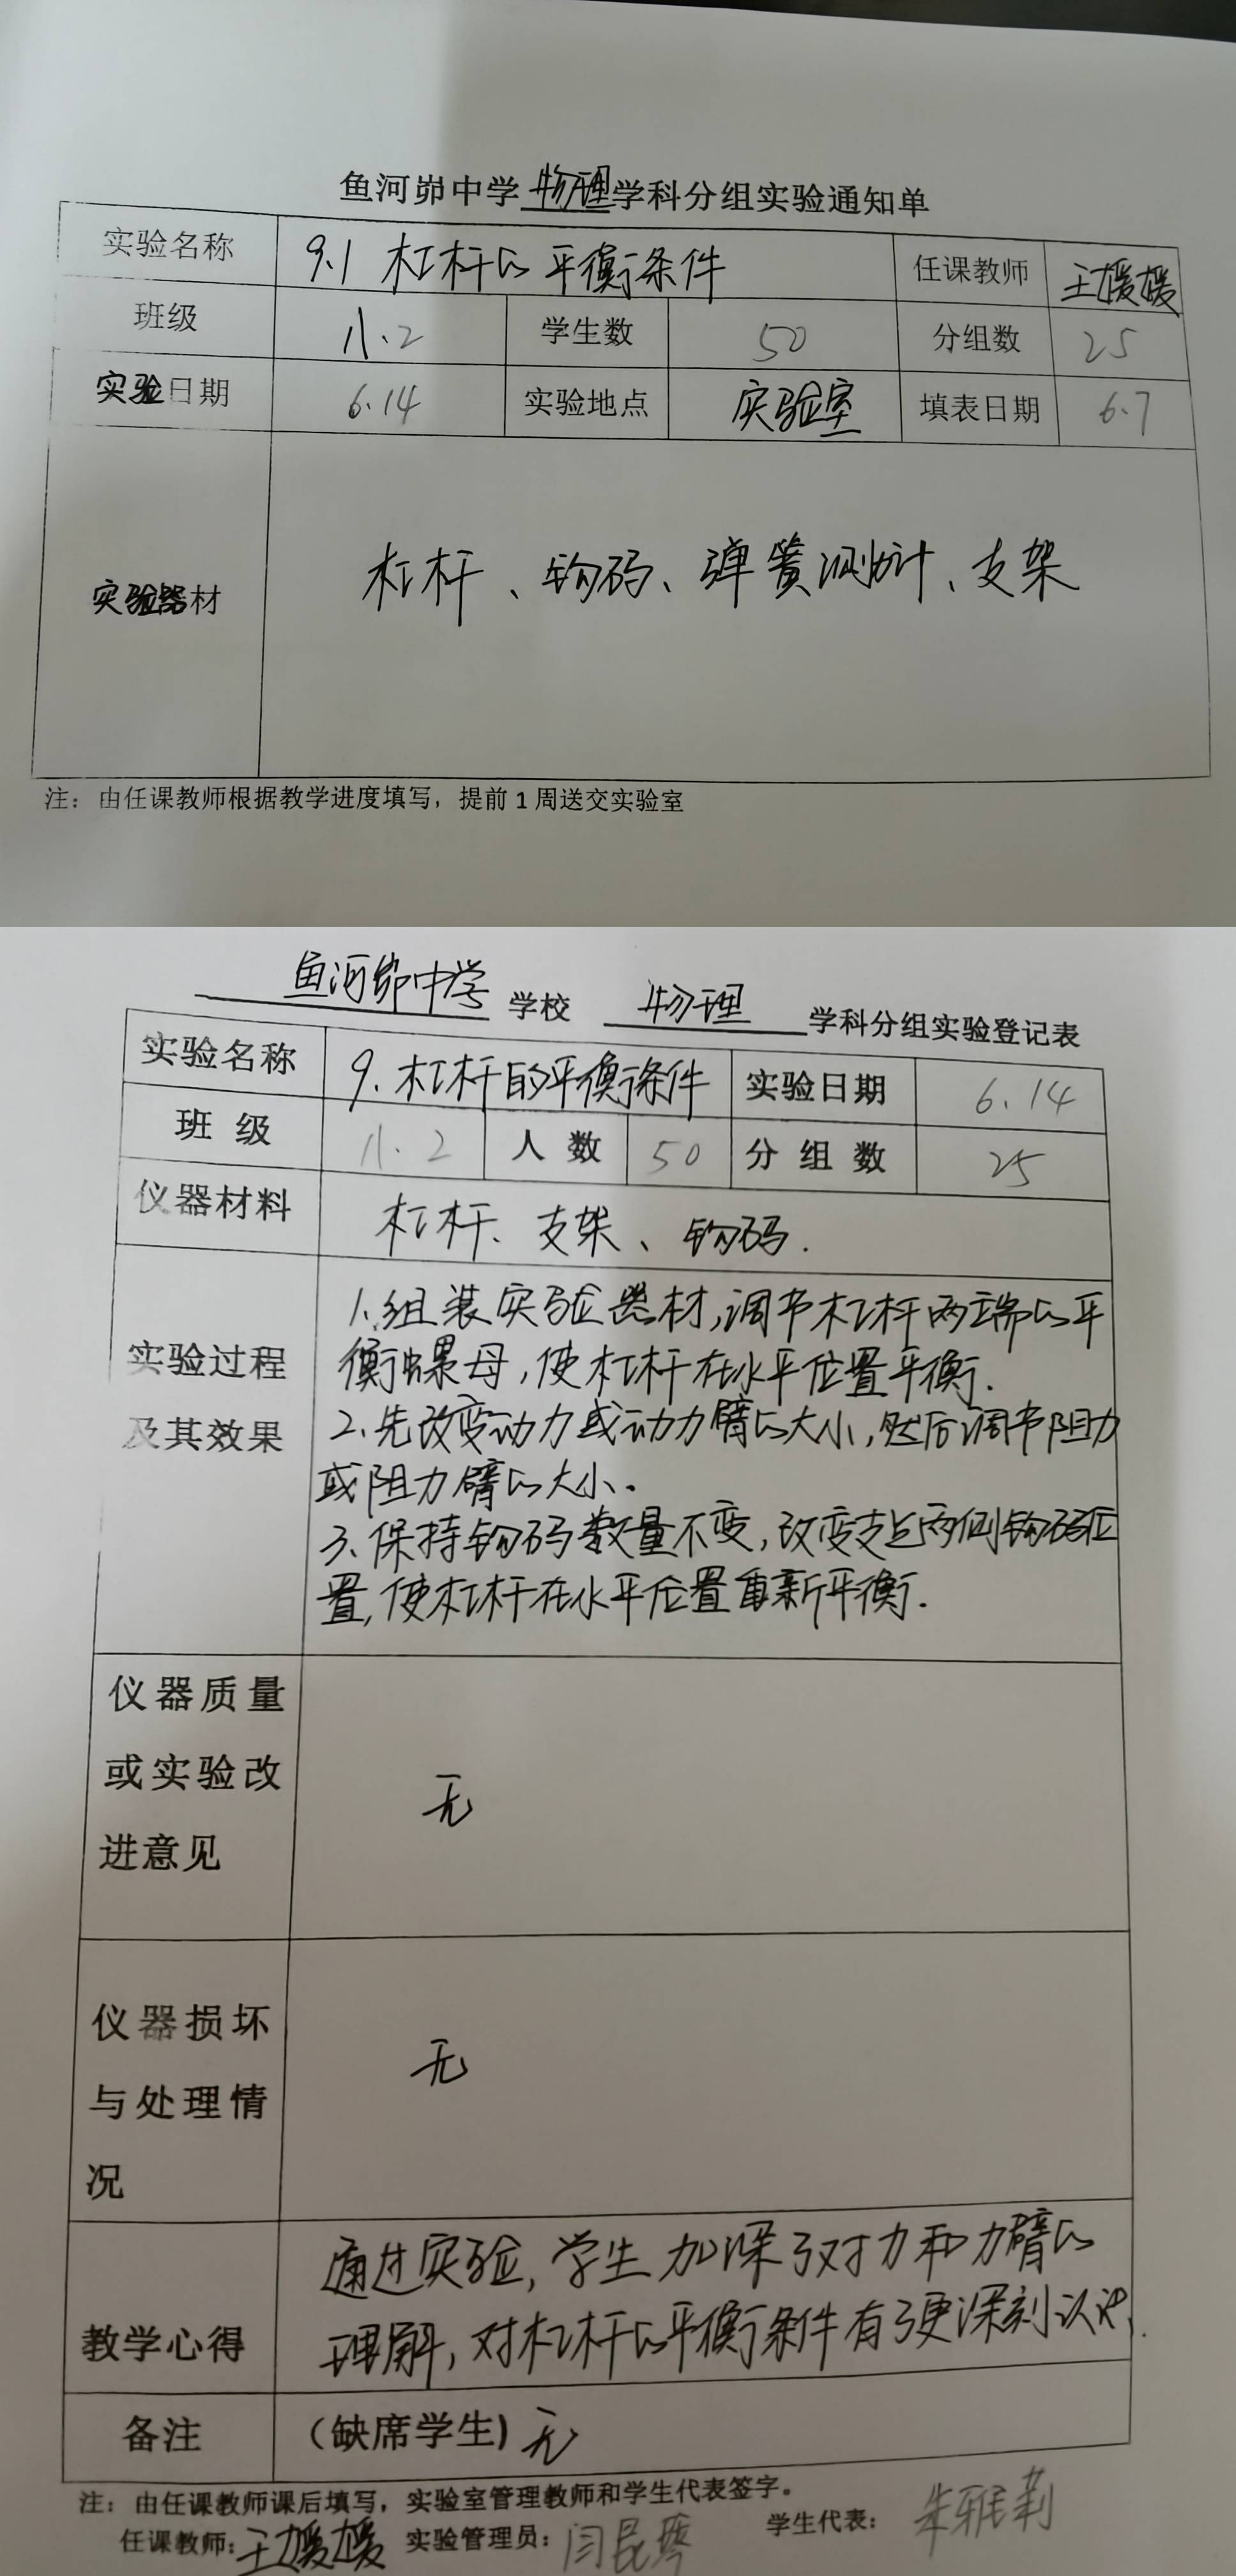 鱼河峁中学物理学科分组实验通知单
实验名称 9.1 杠杆的平衡条件 任课教师 王媛媛
班级 八.2 学生数 50 分组数 25
实验日期 6.14 实验地点 实验室 填表日期 6.7
实验器材 杠杆、钩码、弹簧测力计、支架
注：由任课教师根据教学进度填写，提前1周送交实验室
鱼河峁中学 学校 物理 学科分组实验登记表
实验名称 9.杠杆的平衡条件 实验日期 6.14
班级 八.2 人数 50 分组数 25
仪器材料 杠杆、支架、钩码.
实验过程
及其效果
1.组装实验器材,调节杠杆两端的平
衡螺母,使杠杆在水平位置平衡.
2.先改变动力或动力臂的大小,然后调节阻力
或阻力臂的大小。
3.保持钩码数量不变,改变支点两侧钩码位
置,使杠杆在水平位置重新平衡.
仪器质量
或实验改
进意见
无
仪器损坏
与处理情
况
无
教学心得
通过实验,学生加深了对力和力臂的
理解,对杠杆的平衡条件有了更深刻认识.
备注 （缺席学生）无
注：由任课教师课后填写，实验室管理教师和学生代表签字。
任课教师：王媛媛 实验管理员：闫昆 学生代表：朱雅莉